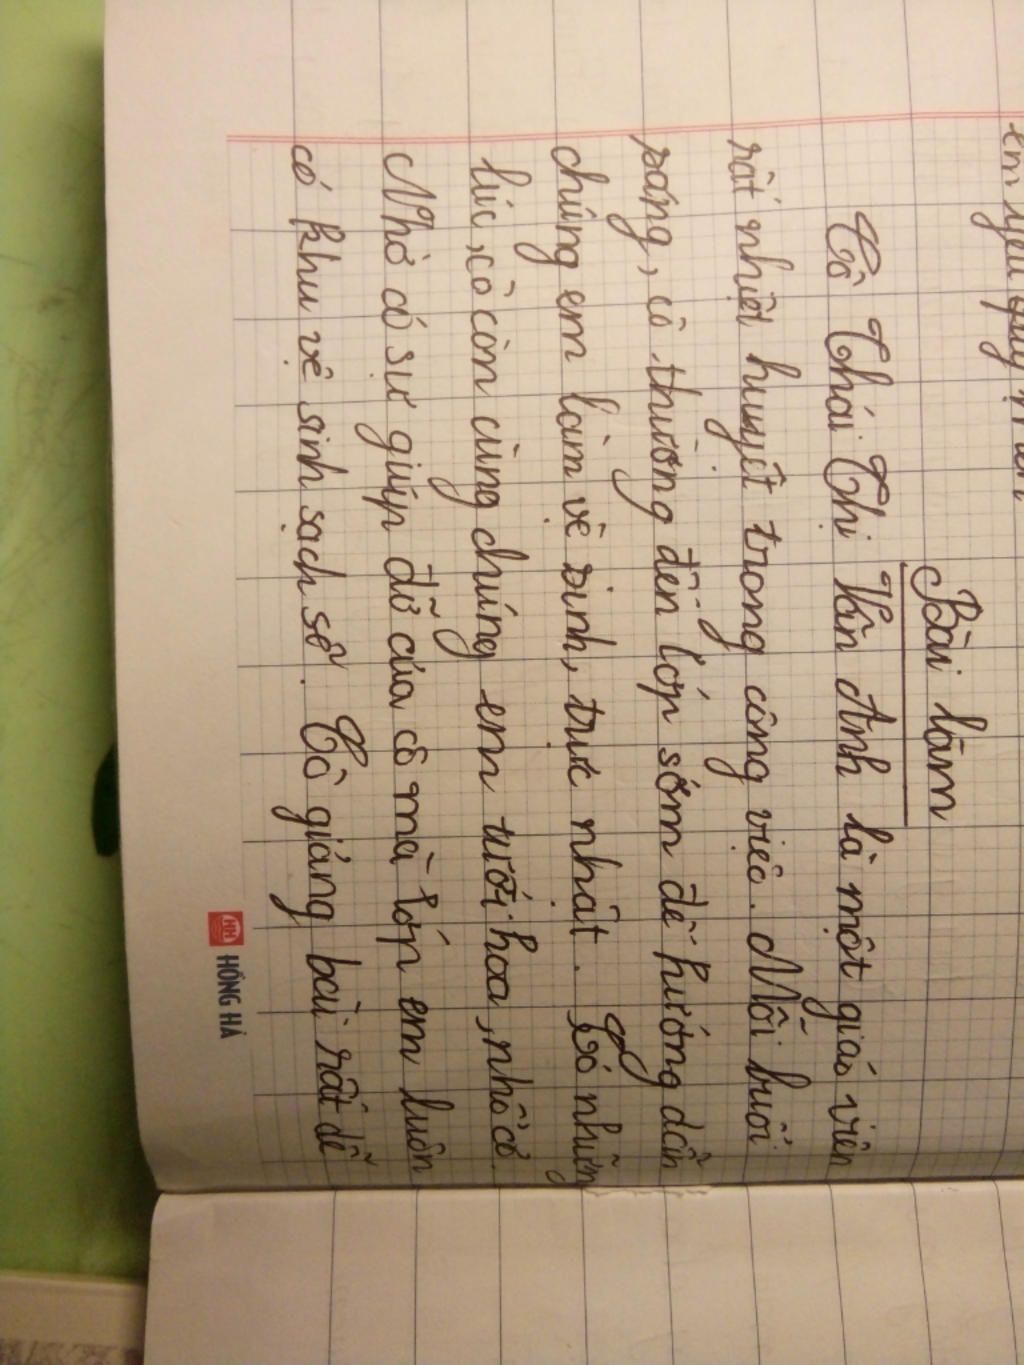 em yêu quý
Bài làm
Cô Thái Thị Vân Anh là một giáo viên
rất nhiệt huyết trong công việc. Mỗi buổi
sáng, cô thường đến lớp sớm để hướng dẫn
chúng em làm vệ sinh, trực nhật. Có những
lúc, cô còn cùng chúng em tưới hoa, nhổ cỏ.
Nhờ có sự giúp đỡ của cô mà lớp em luôn
có khu vệ sinh sạch sẽ. Cô giảng bài rất dễ
HỒNG HÀ